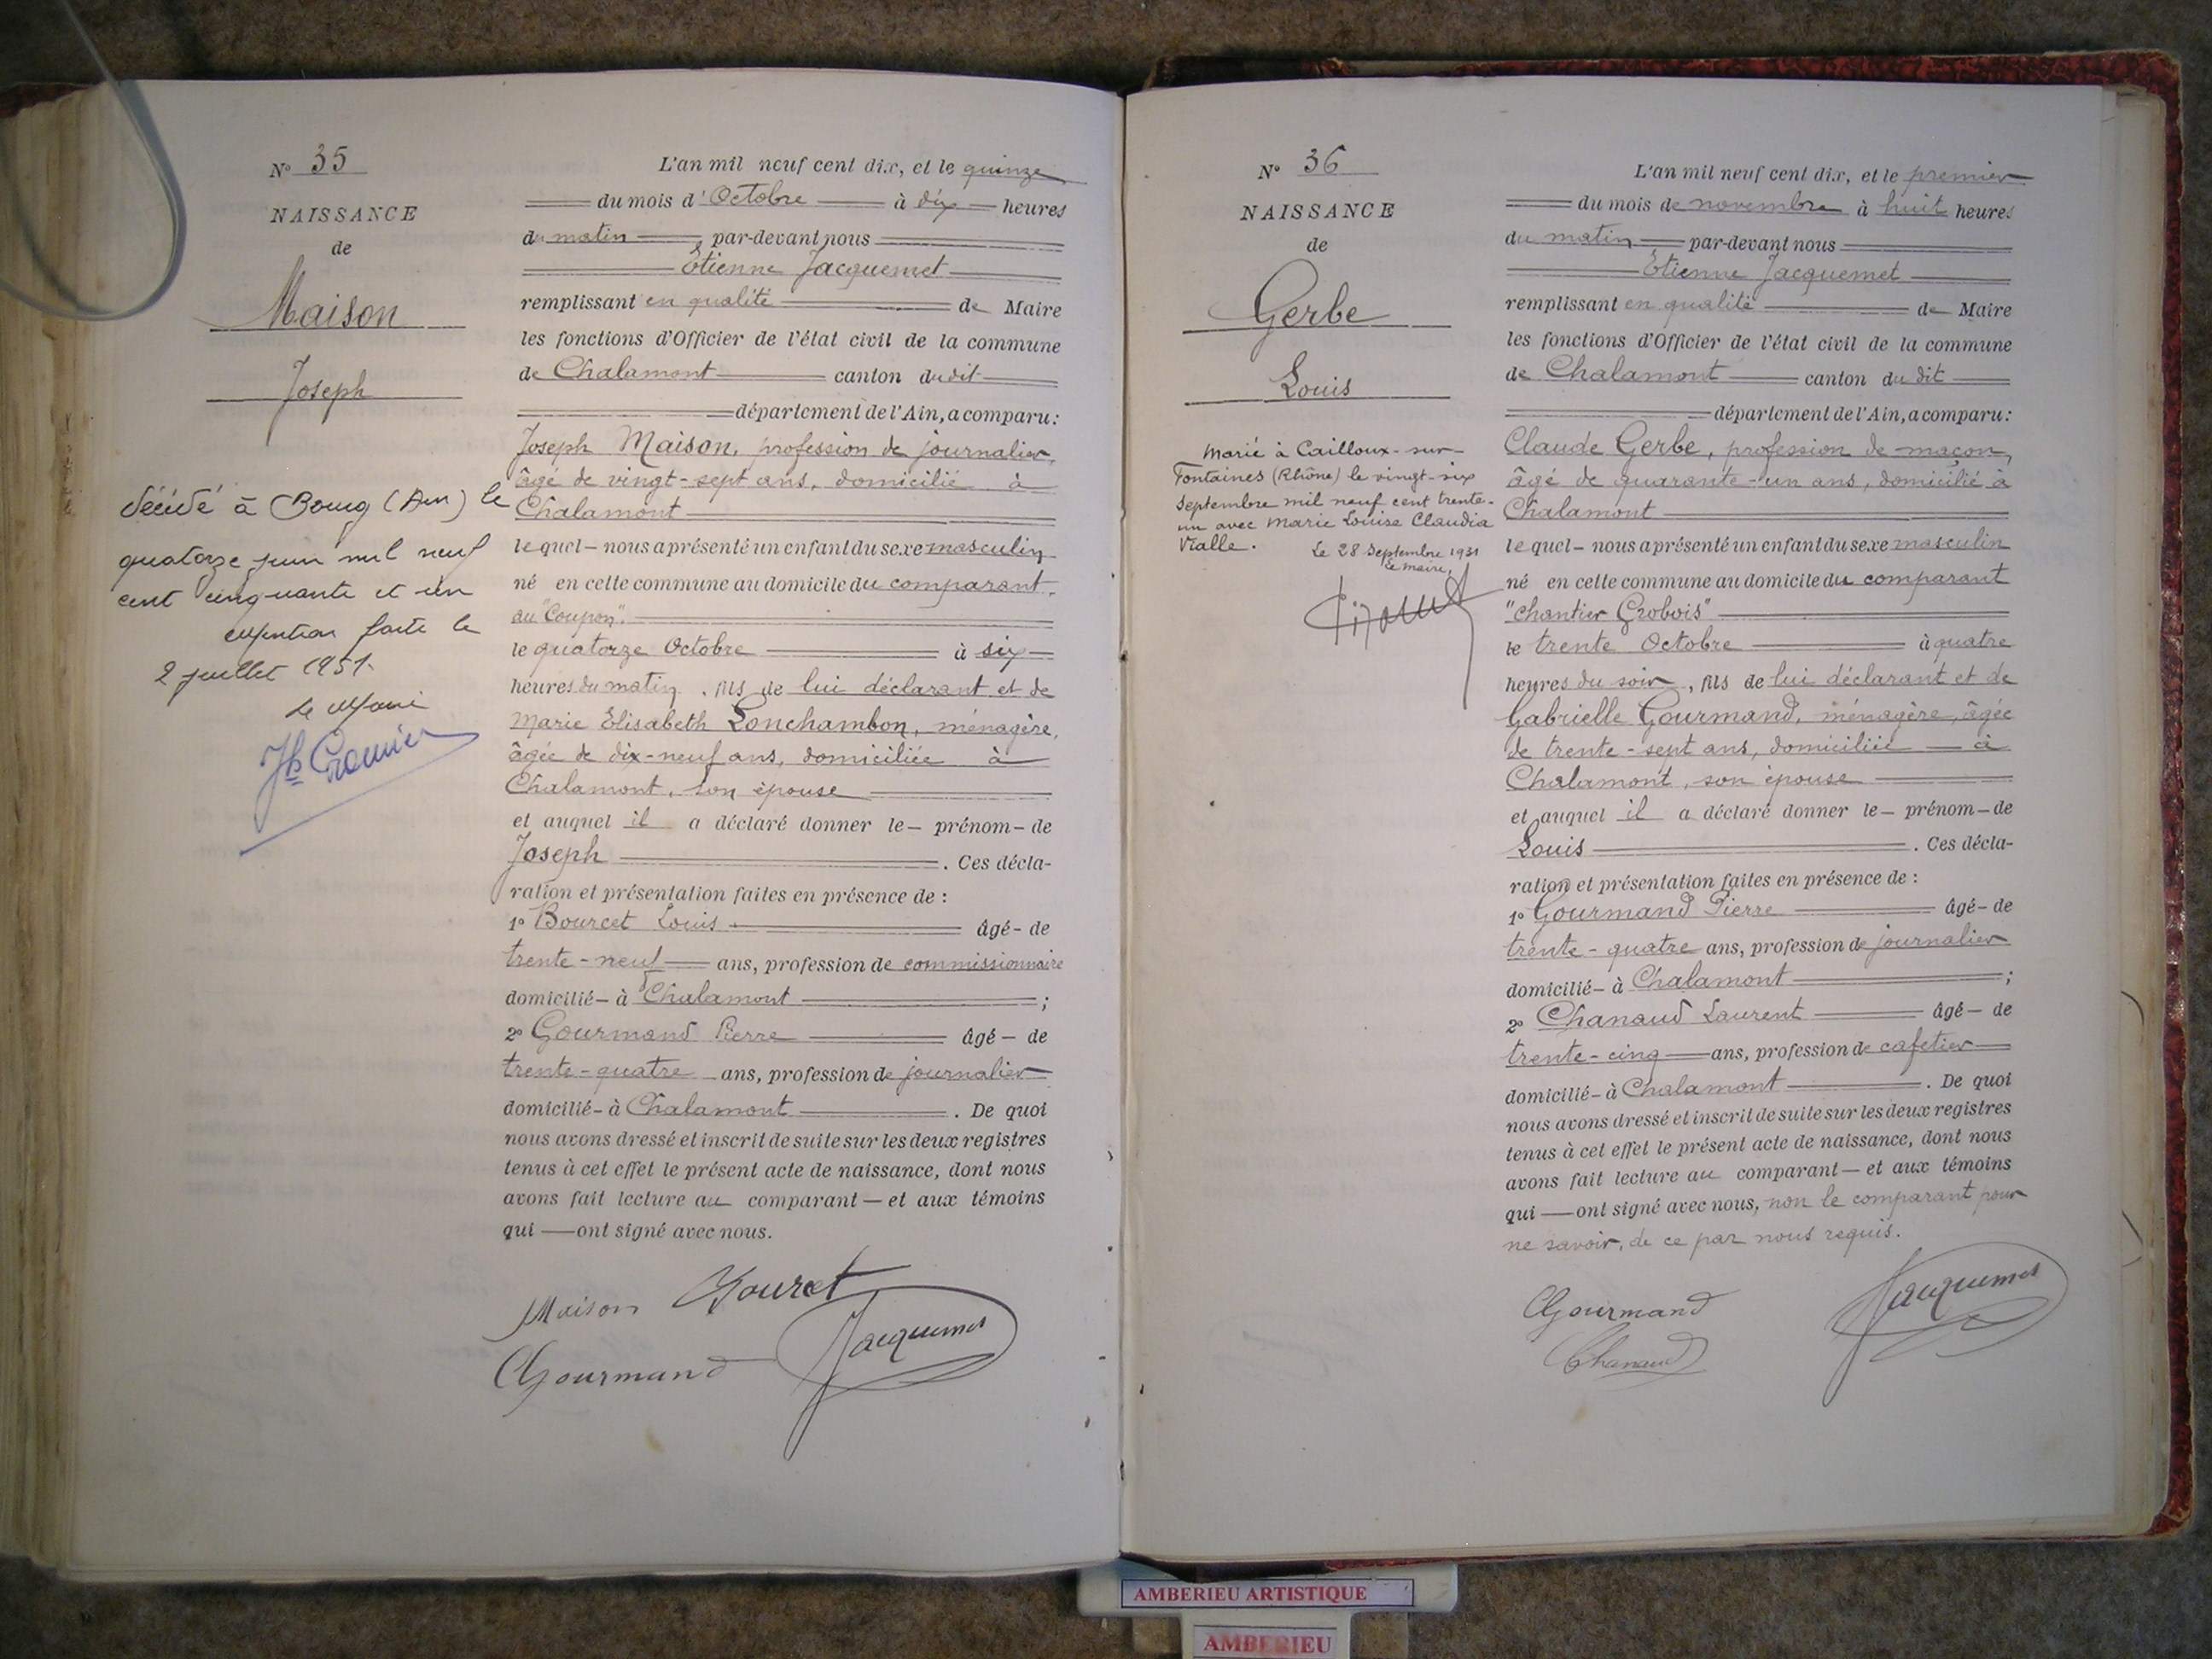 N° 35
NAISSANCE
de
Maison
Joseph
décédé à Bourg (Ain) le
quatorze juin mil neuf
cent cinquante et un
Mention faite le
2 juillet 1951.
Le Maire
L'an mil neuf cent dix, et le quinze
du mois d'Octobre à dix heures
du matin par-devant nous
Etienne Jacquemet
remplissant en qualité de Maire
les fonctions d'Officier de l'état civil de la commune
de Chalamont canton dudit
département de l'Ain, a comparu :
Joseph Maison, profession de journalier,
âgé de vingt-sept ans, domicilié à
Chalamont
lequel - nous a présenté un enfant du sexe masculin
né en cette commune au domicile du comparant,
au "Coupon".
le quatorze Octobre à six
heures du matin, fils de lui déclarant et de
Marie Elisabeth Lonchambon, ménagère,
âgée de dix-neuf ans, domiciliée à
Chalamont, son épouse
et auquel il a déclaré donner le - prénom - de
Joseph . Ces décla-
ration et présentation faites en présence de :
1° Bourcet Louis âgé - de
trente-neuf ans, profession de commissionnaire
domicilié - à Chalamont ;
2° Gourmand Pierre âgé - de
trente-quatre ans, profession de journalier
domicilié - à Chalamont . De quoi
nous avons dressé et inscrit de suite sur les deux registres
tenus à cet effet le présent acte de naissance, dont nous
avons fait lecture au comparant — et aux témoins
qui — ont signé avec nous.
Maison Bourcet
Gourmand Jacquemet
N° 36
NAISSANCE
de
Gerbe
Louis
Marié à Cailloux-sur-
Fontaines (Rhône) le vingt-six
Septembre mil neuf cent trente-
un avec Marie Louise Claudia
Vialle.
Le 28 Septembre 1931
Le maire,
L'an mil neuf cent dix, et le premier
du mois de novembre à huit heures
du matin par-devant nous
Etienne Jacquemet
remplissant en qualité de Maire
les fonctions d'Officier de l'état civil de la commune
de Chalamont canton du dit
département de l'Ain, a comparu :
Claude Gerbe, profession de maçon,
âgé de quarante-un ans, domicilié à
Chalamont
lequel - nous a présenté un enfant du sexe masculin
né en cette commune au domicile du comparant
"chantier Grobois"
le trente Octobre à quatre
heures du soir, fils de lui déclarant et de
Gabrielle Gourmand, ménagère, âgée
de trente-sept ans, domiciliée à
Chalamont, son épouse
et auquel il a déclaré donner le - prénom - de
Louis . Ces décla-
ration et présentation faites en présence de :
1° Gourmand Pierre âgé - de
trente-quatre ans, profession de journalier
domicilié - à Chalamont ;
2° Chanaud Laurent âgé - de
trente-cinq ans, profession de cafetier
domicilié - à Chalamont . De quoi
nous avons dressé et inscrit de suite sur les deux registres
tenus à cet effet le présent acte de naissance, dont nous
avons fait lecture au comparant — et aux témoins
qui — ont signé avec nous, non le comparant pour
ne savoir, de ce par nous requis.
Gourmand Jacquemet
Chanaud
AMBERIEU ARTISTIQUE
AMBERIEU